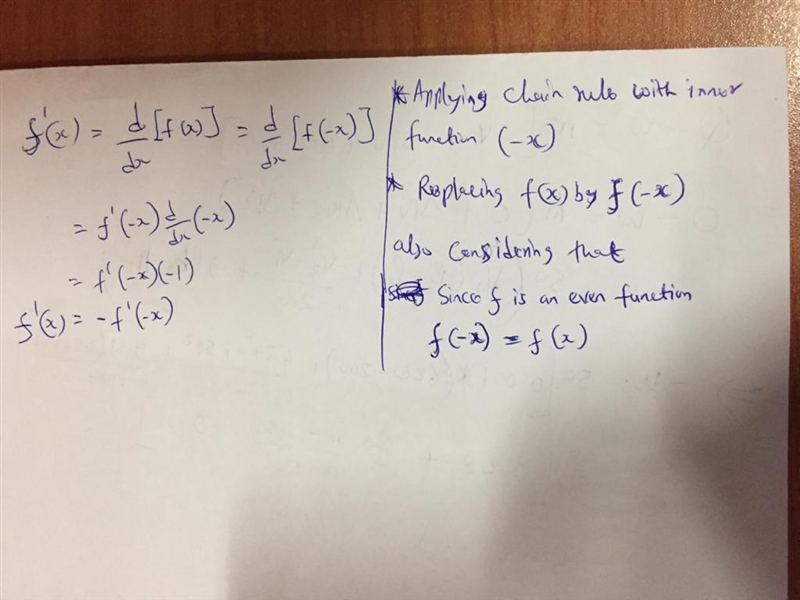 f'(x) = d/dx [f(x)] = d/dx [f(-x)]
= f'(-x) d/dx (-x)
= f'(-x)(-1)
f'(x) = -f'(-x)
* Applying chain rule with inner
function (-x)
* Replacing f(x) by f(-x)
also Considering that
Since f is an even function
f(-x) = f(x)